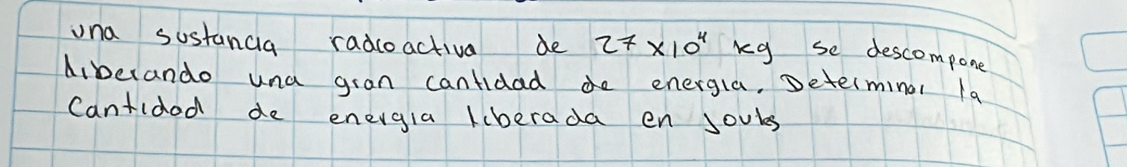 una sustancia radioactiva de 27x10⁴ kg se descompone
liberando una gran cantidad de energia. Determinar la
Cantidad de energia liberada en Joules